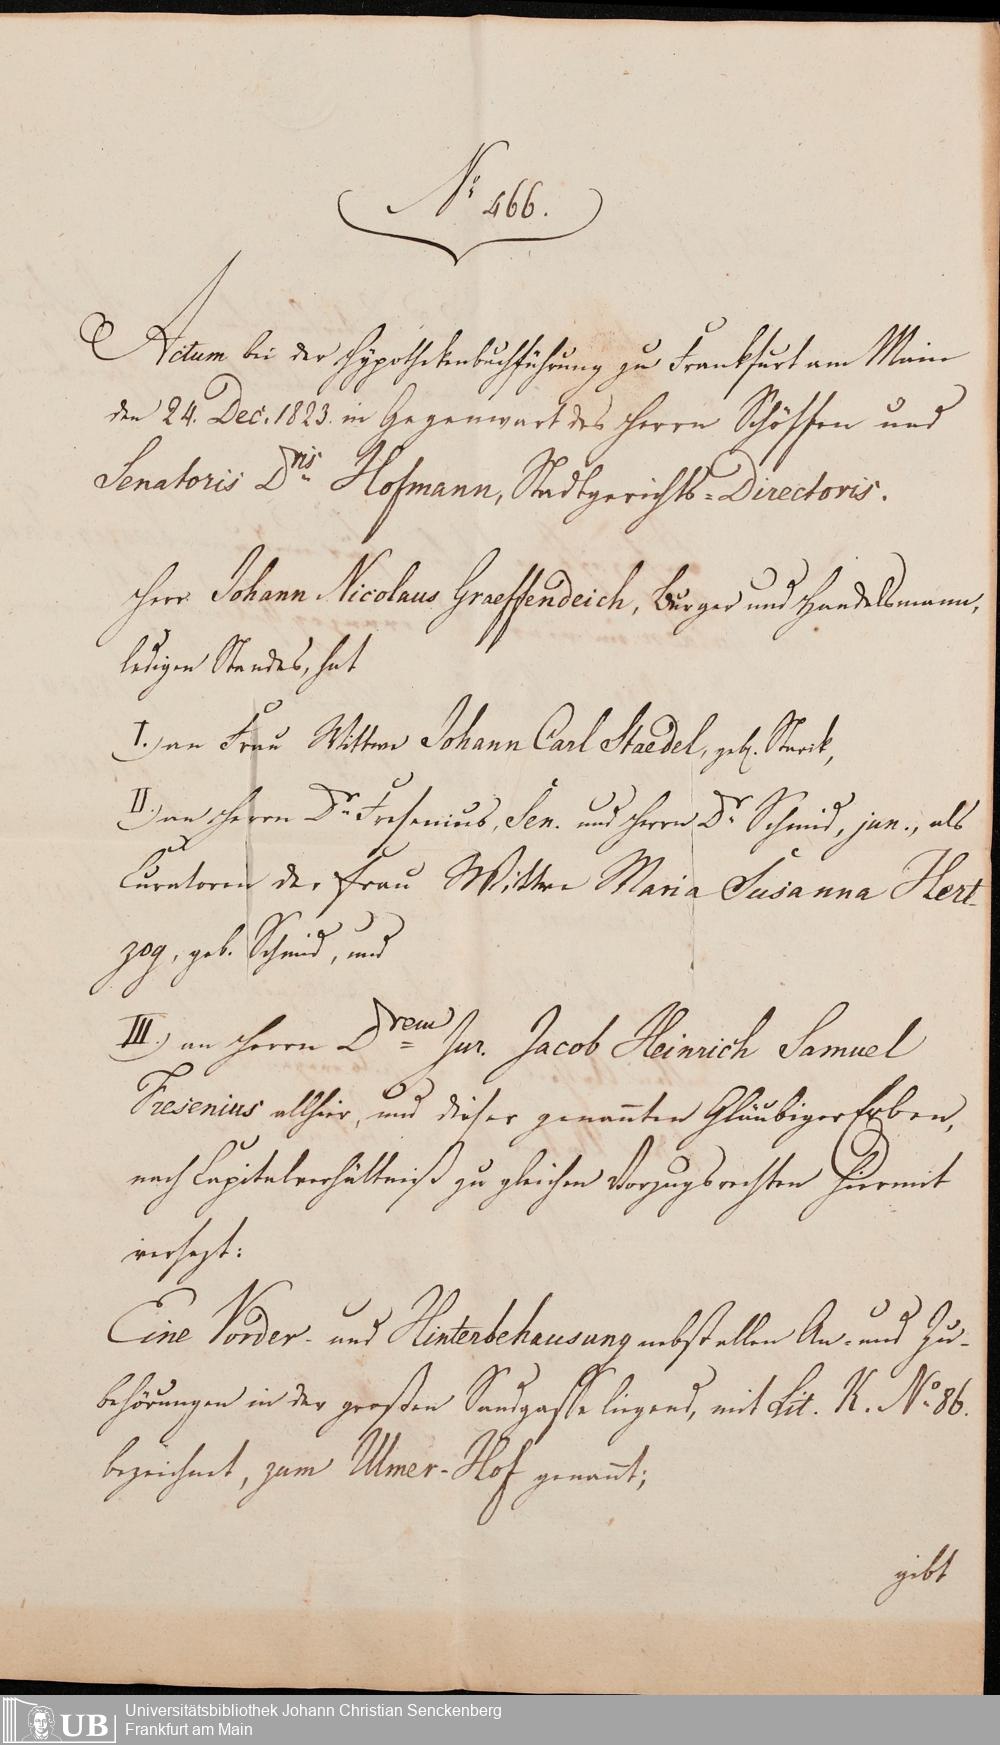 No 466.
Actum bei der Hypothekenbuchführung zu Frankfurt am Main
den 24. Dec. 1823. in Gegenwart des Herrn Schöffen und
Senatoris Dris Hofmann, Stadtgerichts=Directoris.
Herr Johann Nicolaus Graeffendeich, Burger und Handelsmann,
ledigen Standes, hat
I.) an Frau Wittwe Johann Carl Staedel, geb. Starck,
II.) an Herrn Dr Fresenius, Sen. und Herrn Dr Schmid, jun., als
Curatoren der Frau Wittwe Maria Susanna Hert-
zog, geb. Schmid, und
III.) an Herrn Drem Jur. Jacob Heinrich Samuel
Fresenius allhier, und dieser genañten Gläubiger Erben,
nach Capitalverhältniß zu gleichen Vorzugsrechten hiermit
versezt:
Eine Vorder- und Hinterbehausung nebst allen An- und Zu-
behörungen in der großen Sandgasse liegend, mit Lit. K. No 86.
bezeichnet, zum Ulmer-Hof genañt;
gibt
UB
Universitätsbibliothek Johann Christian Senckenberg
Frankfurt am Main